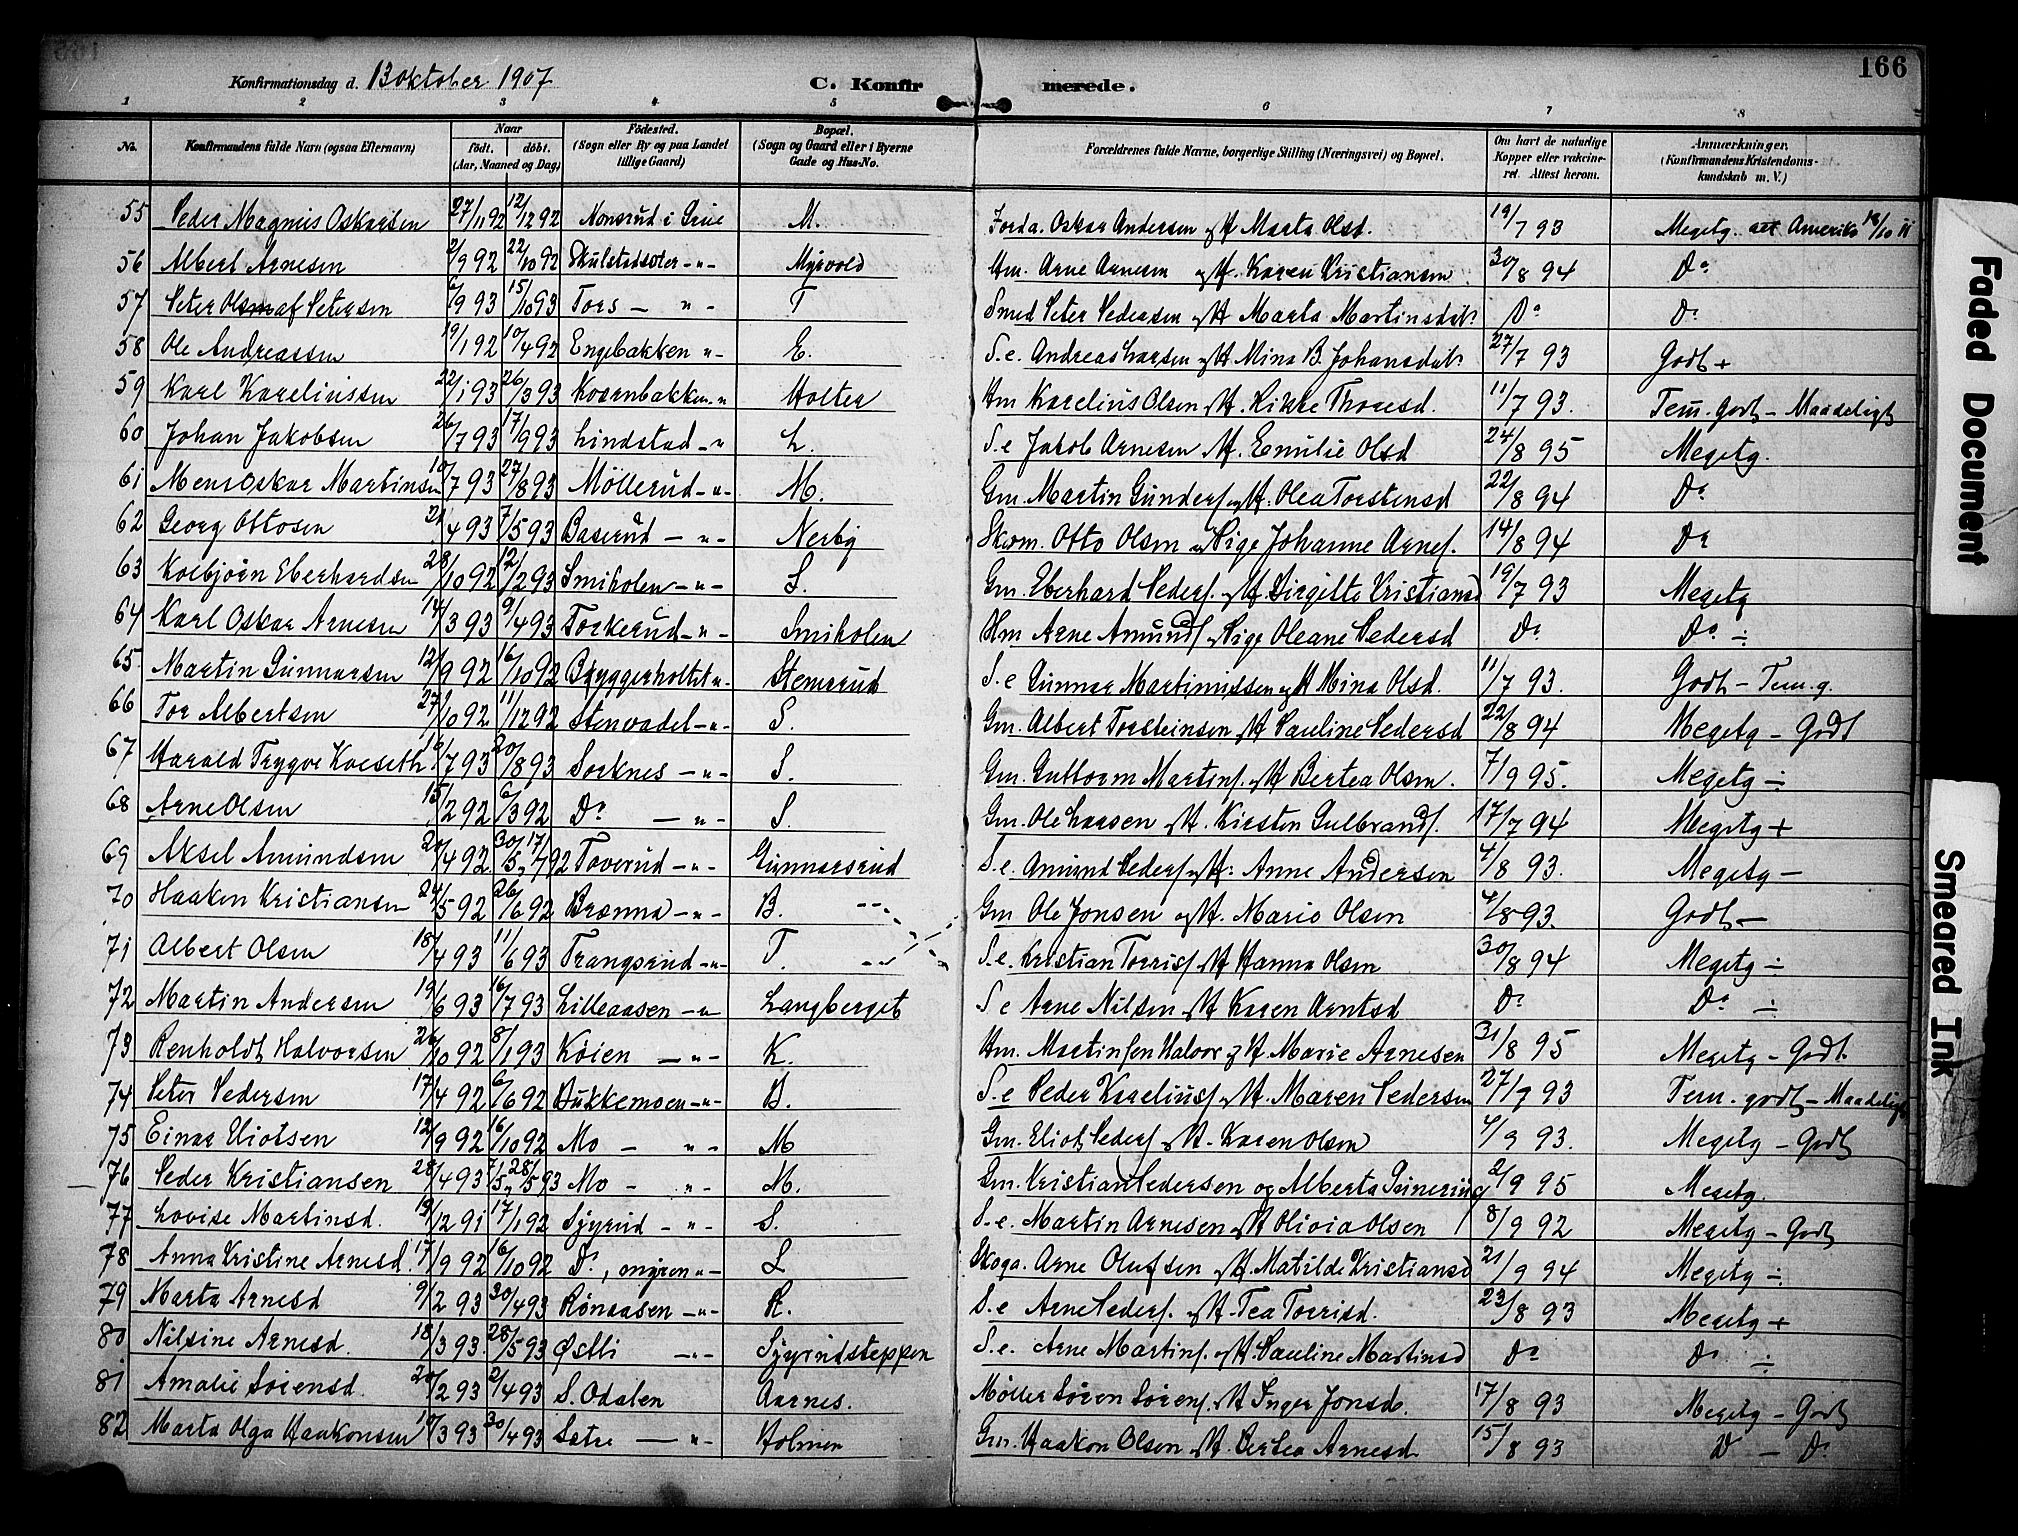 166
Konfirmationsdag d. 13 oktober 1907 C. Konfirmerede.
1 2 3 4 5 6 7 8
No. Konfirmandens fulde Navn (ogsaa Efternavn) Naar født. døbt. (Aar, Maaned og Dag) Fødested. (Sogn eller By og paa Landet tillige Gaard) Bopæl. (Sogn og Gaard eller i Byerne Gade og Hus-No. Forældrenes fulde Navne, borgerlige Stilling (Næringsvei) og Bopæl. Om havt de naturlige Kopper eller vakcineret. Attest herom. Anmærkninger. (Konfirmandens Kristendomskundskab m. V.)
55 Peder Magnus Oskarsen 27/11 92 12/12 92 Monsrud i Grue M. Forda. Oskar Andersen og H. Marta Olsd. 19/7 93 Megetg. Amerika 18/10 11
56 Albert Arnesen 2/9 92 22/10 92 Skulstadsæter -"- Myrvold Hm. Arne Arnesen og H. Karen Kristiansen 30/8 94 Do
57 Peter Olsen af Petersen 6/9 93 15/10 93 Tors - "- T Smed Peter Pedersen og H Marta Martinsdtr. Do Do
58 Ole Andreassen 19/1 92 10/4 92 Engebakken "- E. S.e. Andreas Larsen og H Mina B. Johansdatr 27/7 93 Godt +
59 Karl Kareliussen 22/1 93 26/3 93 Kvernbakken -" Holter Hm Karelius Olsen og H. Rikke Thoresd. 11/7 93. Tem. godt - Maadeligt
60 Johan Jakobsen 26/7 93 17/9 93 Lindstad -" L. S.e Jakob Arnesen og H. Emilie Olsd 24/8 95 Megetg.
61 Mens Oskar Martinsen 10/7 93 27/8 93 Møllerud -"- M. Gm. Martin Gunders. og H. Olea Torstensd 22/8 94 Do
62 Georg Ottosen 21/4 93 7/5 93 Baserud -"- Nerby Skom. Otto Olsen og Pige Johanne Arnes. 14/8 94 Do
63 Kolbjørn Eberhardsen 28/10 92 12/2 93 Smiholen -"- S. Gm. Eberhard Peders. og H. Birgitte Kristiansd 19/7 93 Megetg
64 Karl Oskar Arnesen 14/3 93 9/4 93 Torkerud -"- Smiholen Hm Arne Amunds. og Pige Oleane Pedersd Do Do ÷
65. Martin Gunnarsen 12/9 92 16/10 92 Bryggerholtet " Stemsrud S.e Gunnar Martinussen og H Mina Olsd. 11/7 93. Godt - Tem. g.
66 Tor Albertsen 27/10 92 11/12 92 Stenvadet -"- S. Gm. Albert Torsteinsen og H Pauline Pedersd 22/8 94 Megetg - Godt
67 Harald Trygve Kveseth 16/7 93 20/8 93 Sorknes -"- S. Gm. Guttorm Martins. og H Bertea Olsen. 7/9 95. Megetg ÷
68 Arne Olsen 15/2 92 6/3 92 Do -"- S. Gm. Ole Larsen og H. Kirsten Gulbrands. 17/7 94 Megetg +
69 Aksel Amundsen 20/4 92 30/5, 17/7 92 Toverud -"- Gunnarsrud S.e. Amund Peders. og H. Anne Andersen 4/8 93. Megetg -
70 Haaken Kristiansen 24/5 92 26/6 92 Brænna -"- B. Gm Ole Jonsen og H. Marie Olsen 4/8 93. Godt -
71 Albert Olsen 18/4 93 11/6 93 Trangsrud -"- T. S.e. Kristian Torris. og H Hanna Olsen 30/8 94 Megetg ÷
72 Martin Andersen 19/6 93 16/7 93 Lilleaasen -" Langberget S e Arne Nilsen og H Karen Arntsd Do Do ÷
73 Renholdt Halvorsen 26/10 92 8/1 93 Køien -"- K. Hm. Martinsen Halvor og H. Marie Arnesen 31/8 95 Megetg - Godt.
74 Peter Pedersen 17/4 92 6/6 92 Bukkemoen -"- B. S.e Peder Karelius. og H. Maren Pedersen 27/7 93 Tem. godt - Maadeligt
75 Einar Eliotsen 12/9 92 16/10 92 Mo - "- M Gm. Eliot Peders. og H. Karen Olsen 4/9 93. Megetg - Godt
76 Peder Kristiansen 28/4 93 7/5, 28/5 93 Mo - "- M. Gm. Kristian Pedersen og Alberta 2/9 95 Megetg.
77 Lovise Martinsd. 19/12 91 17/1 92 Sjyrud -"- S. S.e. Martin Arnesen og H Olivia Olsen 8/9 92 Megetg - Godt
78 Anna Kristine Arnesd. 17/9 92 16/10 92 Do, myren -"- L Skoga. Arne Olufsen og H. Matilde Kristiansd 21/9 94 Megetg ÷
79 Marta Arnesd 9/2 93 30/4 93 Rønaasen -"- R. S.e Arne Peders. og H. Tea Torrisd. 23/8 93 Megetg +
80 Nilsine Arnesd. 18/3 93. 28/5 93 Østli -"- Sjyrudsteppen S.e. Arne Martins. og H. Pauline Martinsd Do Do ÷
81 Amalie Sørensd. 20/2 93 2/4 93 S. Odalen Aarnes. Møller Søren Sørens. og H Inger Jonsd. 17/8 93 Megetg - Godt
82 Marta Olga Haakonsen 10/3 93 30/4 93 Sætre -"- Holmen Gm. Haakon Olsen og H. Bertea Arnesd 15/8 93 D - Do
Faded Document
Smeared Ink